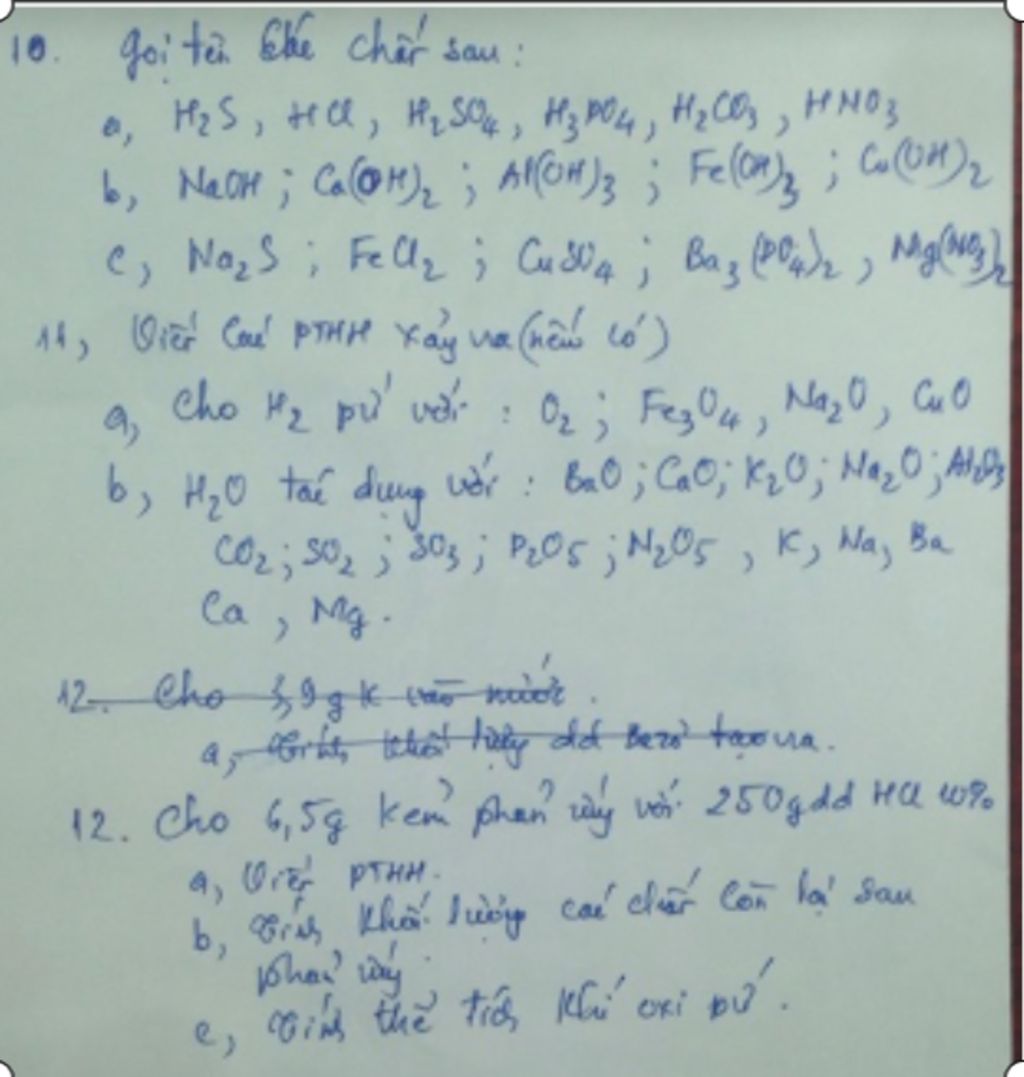 10. Gọi tên các chất sau:
a, H₂S, HCl, H₂SO₄, H₃PO₄, H₂CO₃, HNO₃
b, NaOH; Ca(OH)₂; Al(OH)₃; Fe(OH)₃; Cu(OH)₂
c, Na₂S; FeCl₂; CuSO₄; Ba₃(PO₄)₂, Mg(NO₃)₂
11, Viết các PTHH xảy ra (nếu có)
a, Cho H₂ pứ với: O₂; Fe₃O₄, Na₂O, CuO
b, H₂O tác dụng với: BaO; CaO; K₂O; Na₂O; Al₂O₃
CO₂; SO₂; SO₃; P₂O₅; N₂O₅, K, Na, Ba
Ca, Mg.
12. Cho 3,9g K vào nước.
a, Tính khối lượng dd Bazơ tạo ra.
12. Cho 6,5g kẽm phản ứng với 250g dd HCl 10%
a, Viết PTHH.
b, Tính khối lượng các chất còn lại sau
phản ứng.
c, Tính thể tích khí oxi pứ.